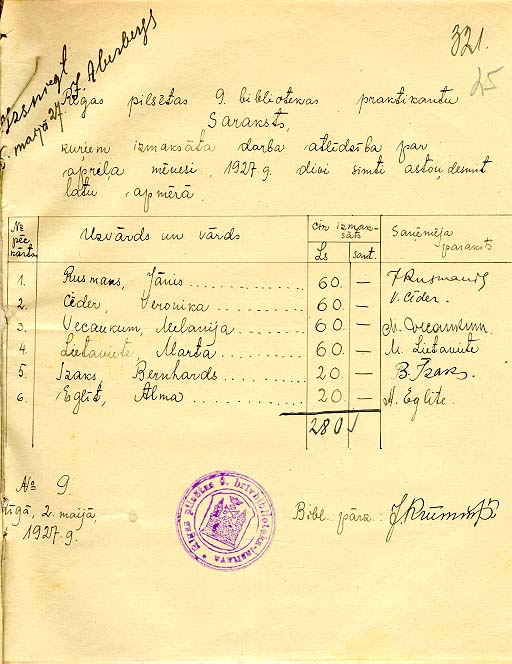 321.
25
Izsniegt
5. maijā 27.
Rīgas pilsētas 9. bibliotekas praktikantu
Saraksts,
kuŗiem izmaksāta darba atlīdzība par
aprīļa mēnesi, 1927. g. divi simti astoņdesmit
latu apmērā.
№ pēc kārtas
Uzvārds un vārds
Cik izmaksāts
Ls
sant.
Saņēmēja paraksts
1. Rusmans, Jānis 60. — J Rusmanis
2. Cēder, Veronika 60. — V. Cēder.
3. Vecaukum, Melanija 60. — M. Vecaukum.
4. Lietaviete Marta 60. — M. Lietaviete
5. Izaks, Bernhards 20. — B. Izaks.
6. Eglīt, Alma 20. — A. Eglīte.
280
№ 9.
Rīgā, 2. maijā,
1927. g.
Bibl. pārz.: